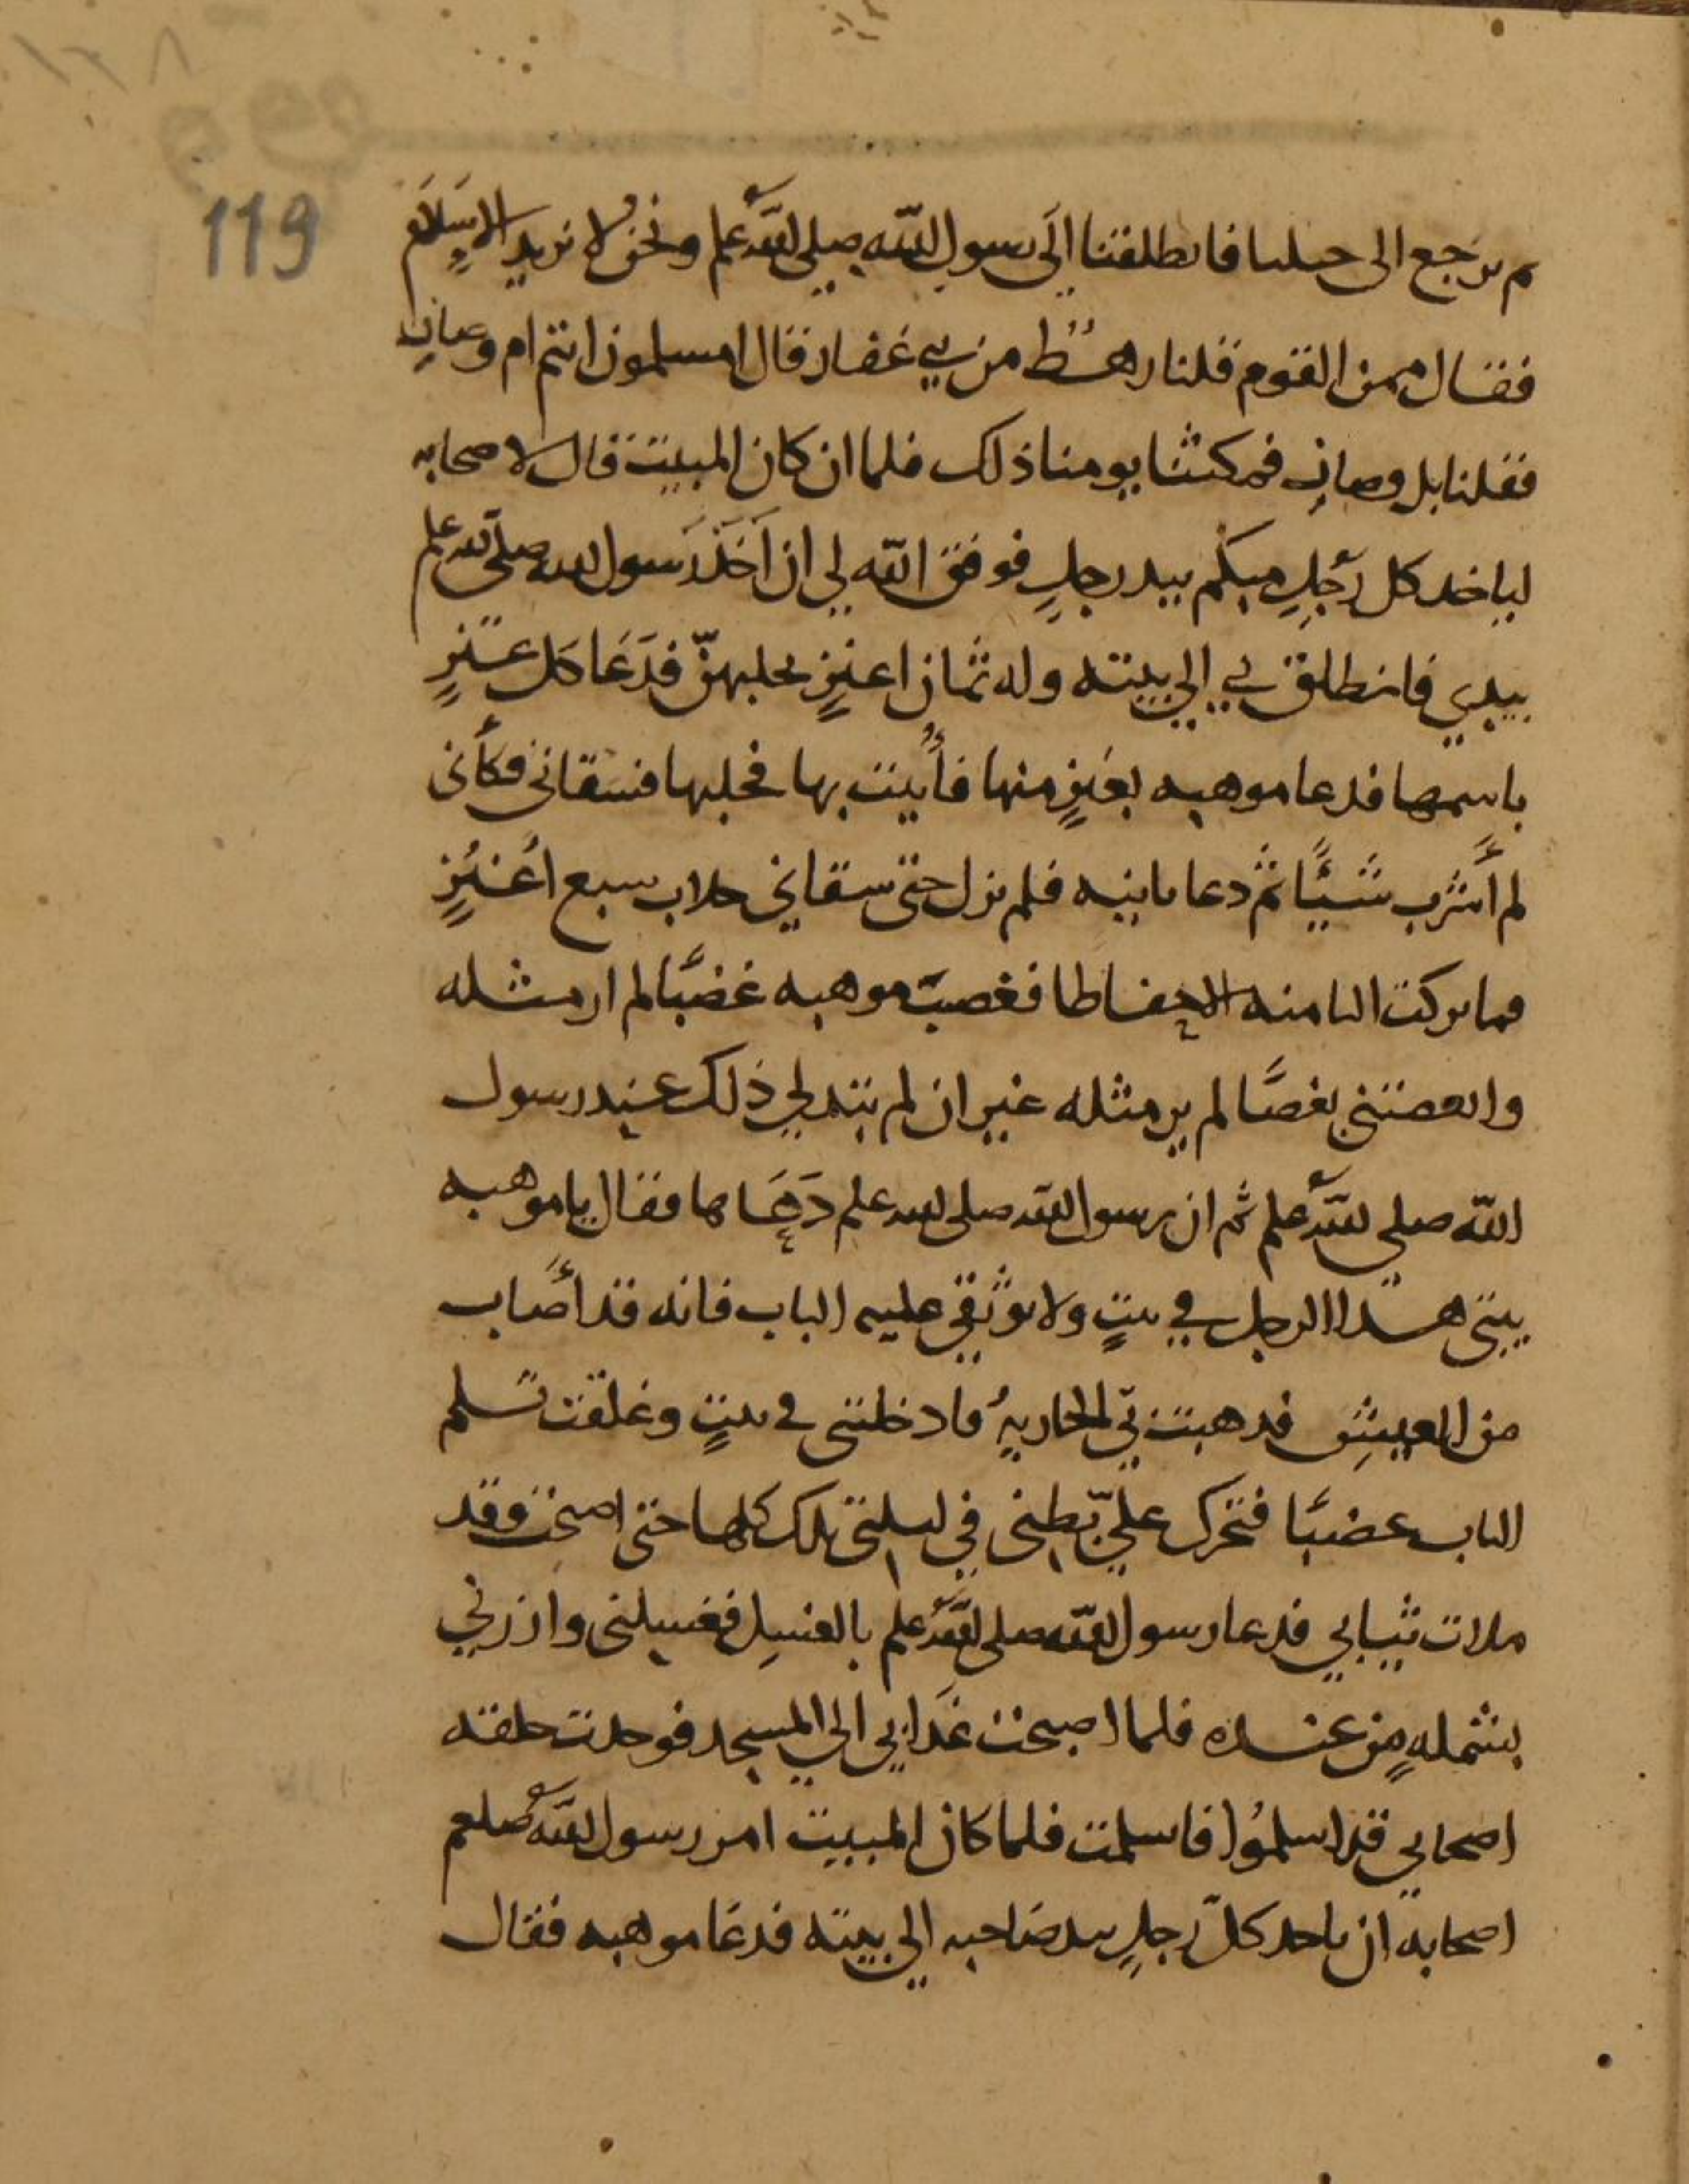 119
ثم نرجع الى جبلنا فانطلقنا الى رسول الله صلى الله علم ونحن لا نريد الاسلام
فقال ممن القوم قلنا رهط من بني غفار قال امسلمون انتم ام وصاف
فقلنا بل وصاف فمكثنا يومنا ذلك فلما ان كان المبيت قال لاصحابه
لياخذ كل رجل منكم بيد رجل فوفق الله لي ان اخذ رسول الله صلى الله علم
بيدي فانطلق بي الي بيته وله ثمان اعنز يحلبهن فدعا كل عنز
باسمها فدعا موهبه بعنز منها فأتيت بها فحلبها فسقاني فكأنى
لم أشرب شيئًا ثم دعا بانيه فلم نزل حتى سقاني حلاب سبع أعنز
وما تركت الثامنه الا حفاظا فغضبت موهبه غضبًا لم ار مثله
وابغضتني بغضًا لم ير مثله غير ان لم تبد لي ذلك عند رسول
الله صلي الله علم ثم ان رسول الله صلى الله علم دعاها فقال يا موهبه
بيتى هذا الرجل في بيتٍ ولا توثقي عليه الباب فانه قد أصاب
من العيش فذهبت بي الجاريهُ فادخلتنى في بيتٍ وغلقت
الباب غضبًا فتحرك عليّ بطنى في ليلتى تلك كلها حتى اصبحت وقد
ملات ثيابي فدعا رسول الله صلى الله علم بالغسل فغسلنى وازرني
بشملهٍ من عنده فلما اصبحت غدا بي الي المسجد فوجدت حلقه
اصحابي قد اسلمُوا فاسلمت فلما كان المبيت امر رسول الله صلعم
اصحابه ان ياخذ كلّ رجلٍ بيد صاحبه الي بيته فدعا موهبه فقال